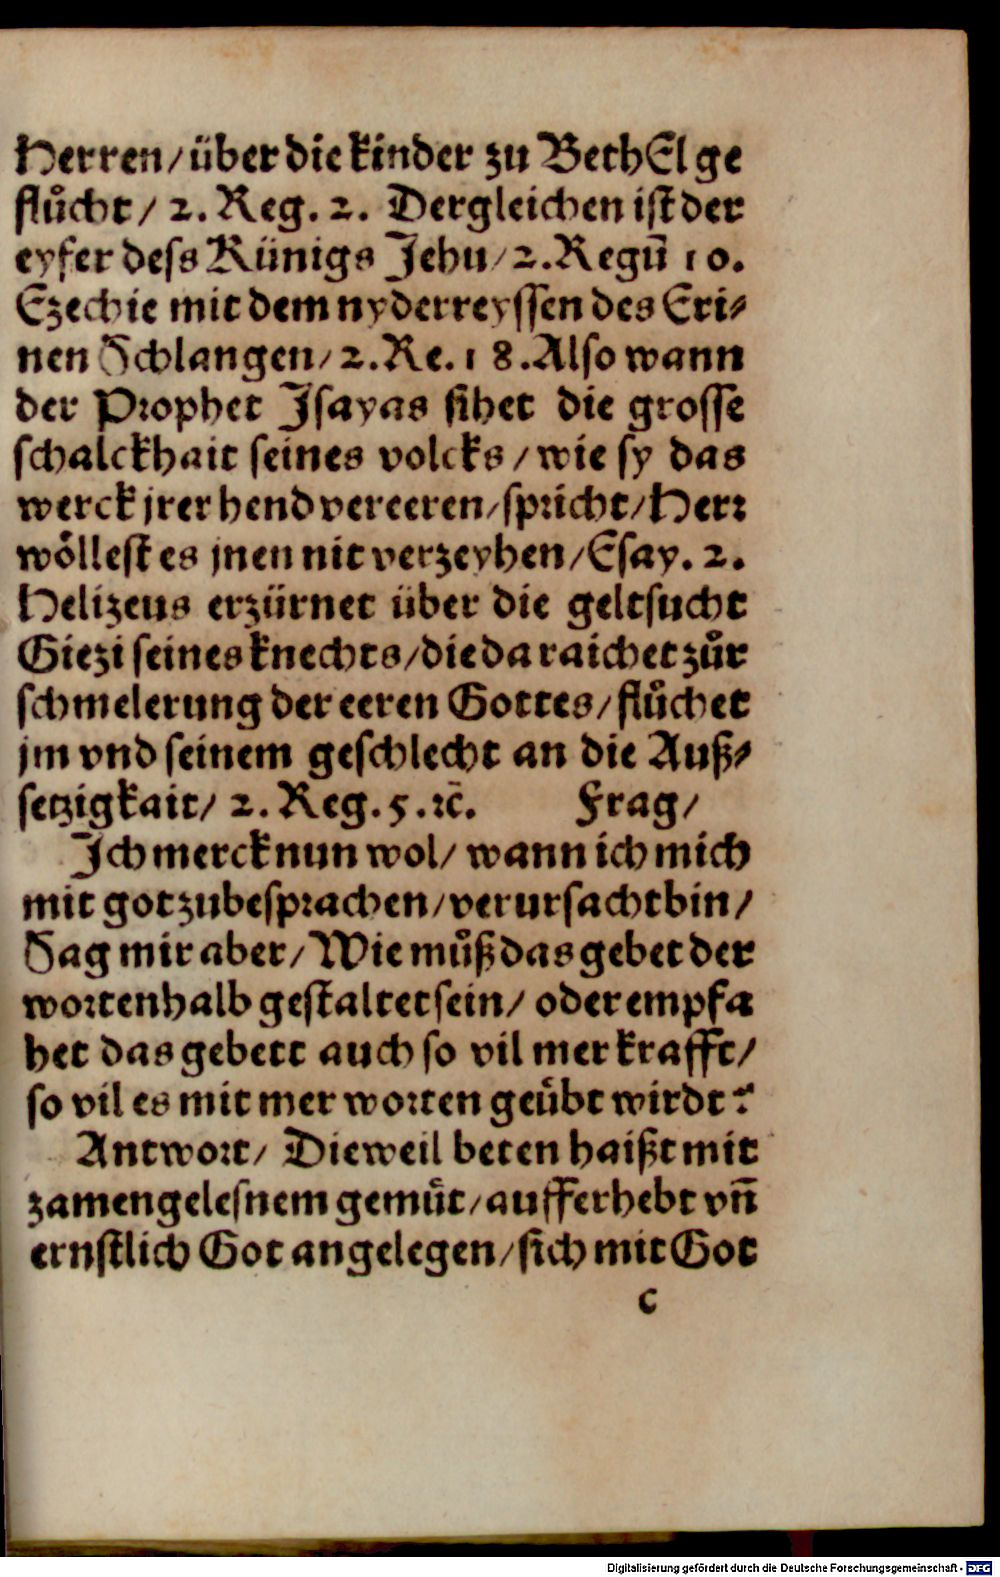 Herren/ über die kinder zu BethEl ge
flůcht/ 2. Reg. 2. Dergleichen ist der
eyfer dess Künigs Jehu/ 2. Regū 10.
Ezechie mit dem nyderreyssen des Eri⸗
nen Schlangen/ 2. Re. 18. Also wann
der Prophet Isayas sihet die grosse
schalckhait seines volcks/ wie sy das
werck jrer hend vereeren/ spricht/ Herr
wöllest es jnen nit verzeyhen/ Esay. 2.
Helizeus erzürnet über die geltsucht
Giezi seines knechts/ die da raichet zůr
schmelerung der eeren Gottes/ flůchet
jm vnd seinem geschlecht an die Auß⸗
setzigkait/ 2. Reg. 5. ꝛc̄. Frag/
Ich merck nun wol/ wann ich mich
mit got zubesprachen/ verursacht bin/
Sag mir aber/ Wie můß das gebet der
worten halb gestaltet sein/ oder empfa
het das gebett auch so vil mer krafft/
so vil es mit mer worten geübt wirdt?
Antwort/ Dieweil beten haißt mit
zamengelesnem gemüt/ aufferhebt vñ
ernstlich Got angelegen/ sich mit Got
c
Digitalisierung gefördert durch die Deutsche Forschungsgemeinschaft - DFG